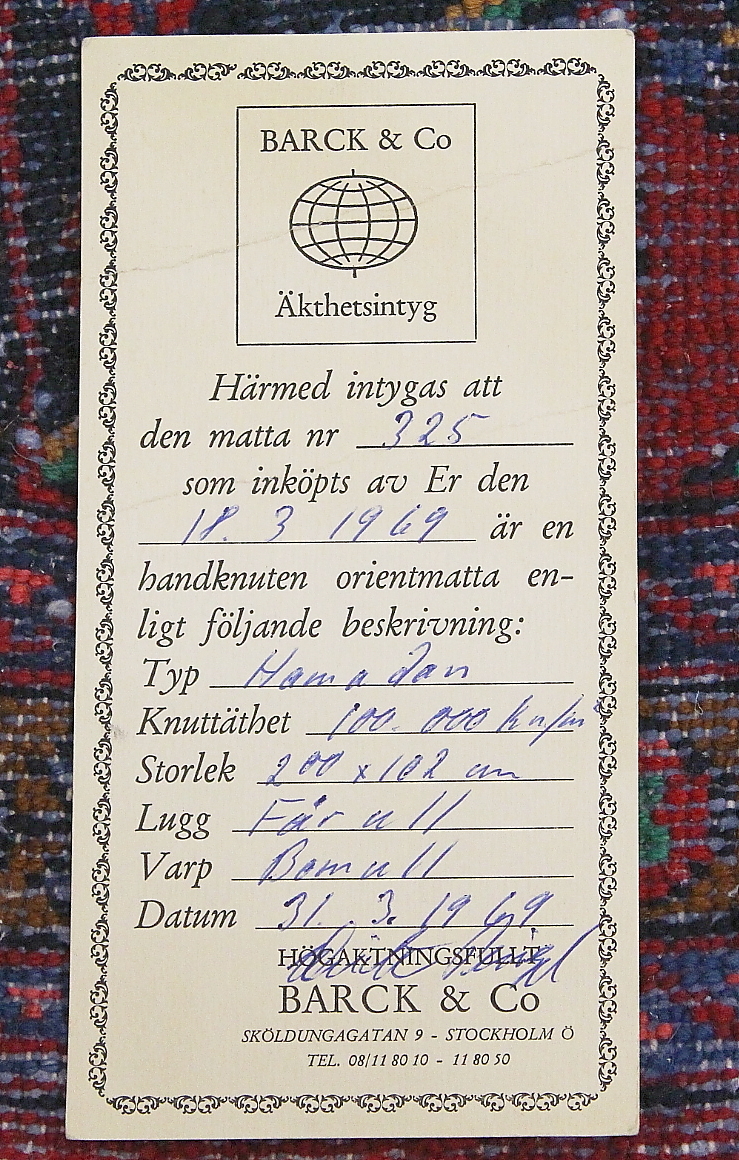 BARCK & Co
Äkthetsintyg
Härmed intygas att
den matta nr 325
som inköpts av Er den
18. 3 1969 är en
handknuten orientmatta en-
ligt följande beskrivning:
Typ Hamadan
Knuttäthet 100.000 kn/m²
Storlek 200 x 102 cm
Lugg Fårull
Varp Bomull
Datum 31. 3. 1969
HÖGAKTNINGSFULLT
BARCK & Co
SKÖLDUNGAGATAN 9 - STOCKHOLM Ö
TEL. 08/11 80 10 - 11 80 50